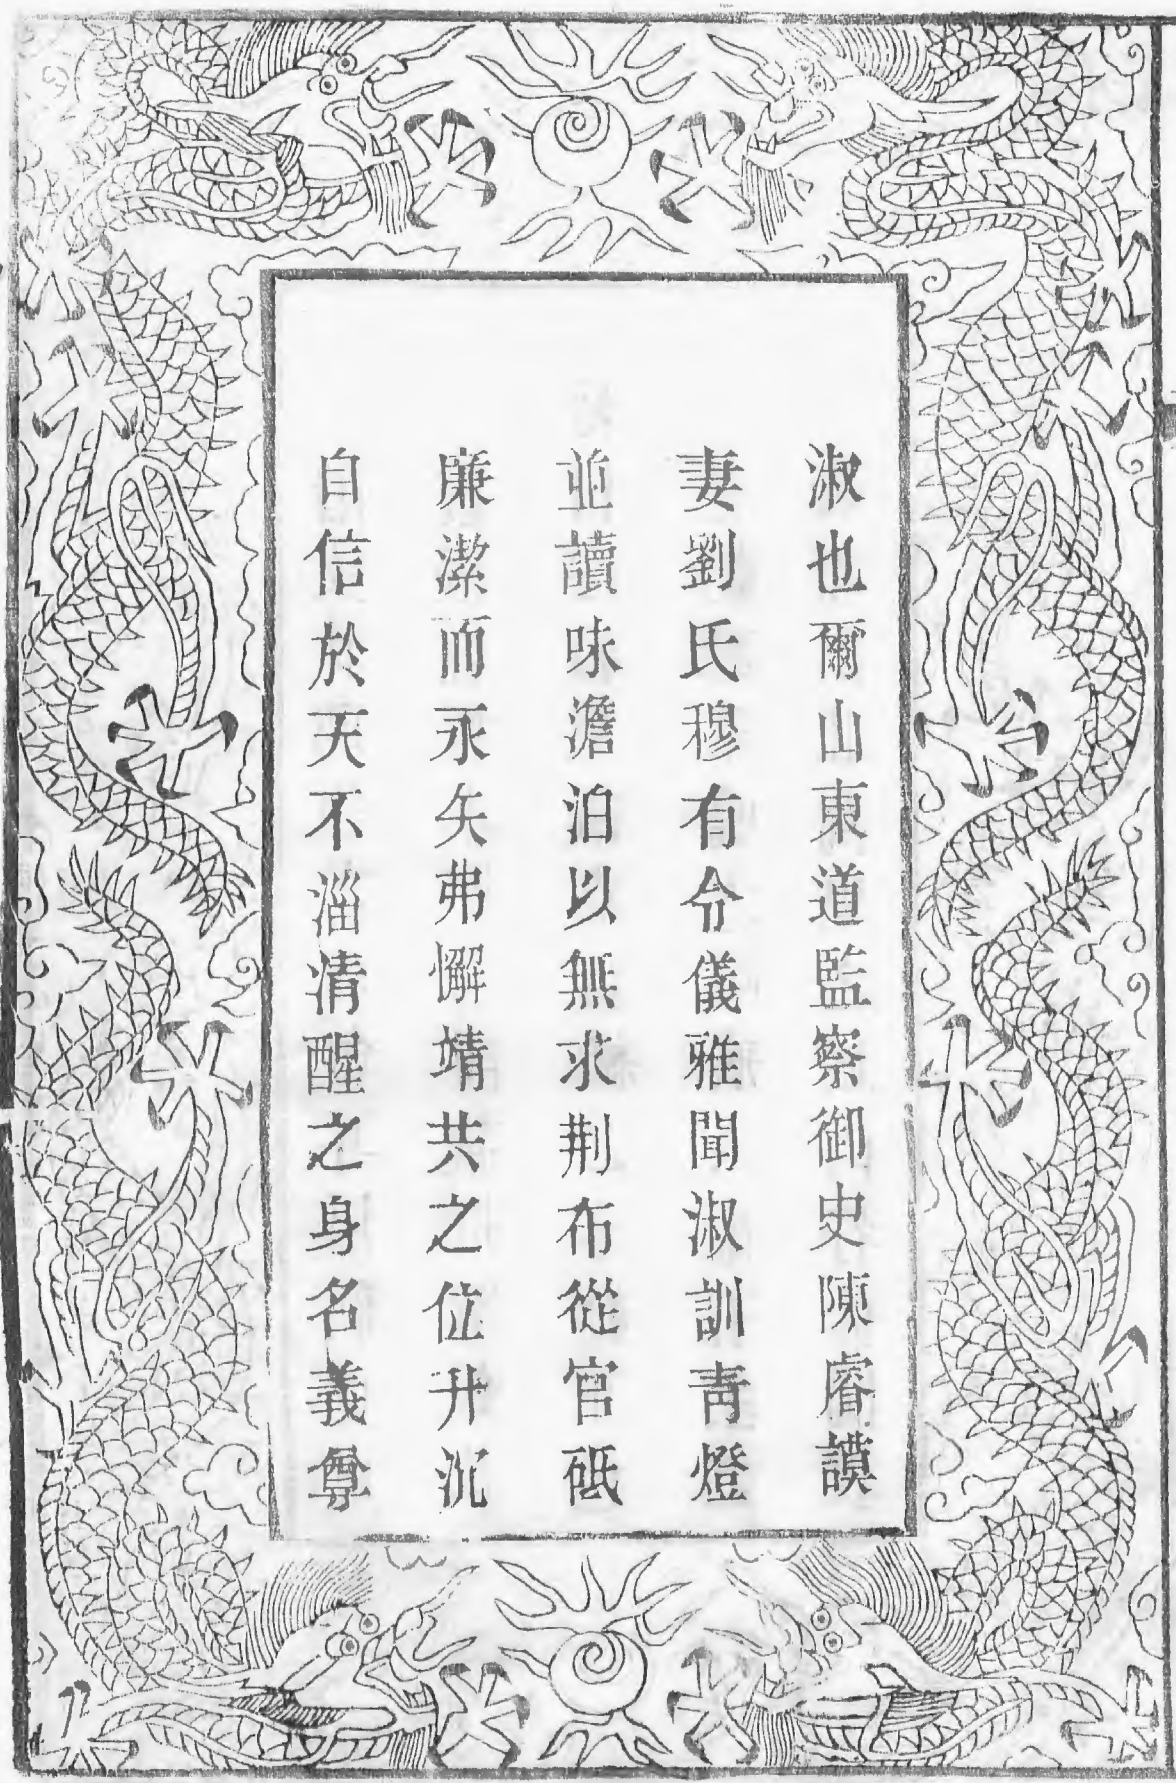 淑也爾山東道監察御史陳睿謨
妻劉氏穆有令儀雅聞淑訓靑燈
並讀味澹泊以無求荆布從官砥
廉潔而永矢弗懈靖共之位升沉
自信於天不淄清醒之身名義尊